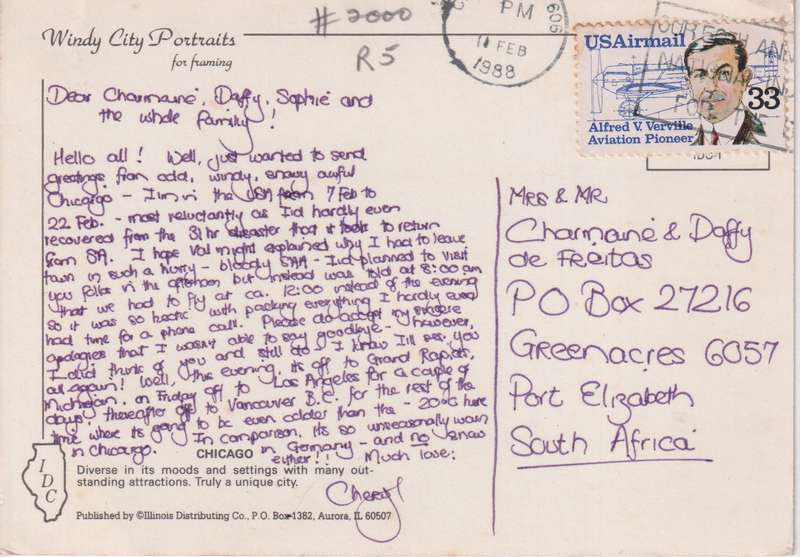 # 2000
R5
Windy City Portraits
for framing
PM
11 FEB
1988
606
USAirmail
33
Alfred V. Verville
Aviation Pioneer
Dear Charmaine, Daffy, Sophie and
the whole family!
Hello all! Well, just wanted to send
greetings from cold, windy, snowy awful
Chicargo - I'm in the USA from 7 Feb to
22 Feb. - most reluctantly as I'd hardly even
recovered from the 31 hr disaster that it took to return
from SA. I hope Val might explained why I had to leave
town in such a hurry - bloody SAA - I'd planned to visit
you folks in the afternoon but instead was told at 8:00 am
that we had to fly at ca. 12:00 instead of the evening
so it was so hectic with packing everything I hardly even
had time for a phone call. Please do accept my sincere
apologies that I wasn't able to say goodbye - however,
I did think of you and still do. I know I'll see you
all again! Well, this evening, its off to Grand Rapids,
Michigan, on Friday off to Los Angeles for a couple of
days, thereafter off to Vancouver B.C. for the rest of the
time where its going to be even colder than the - 20°C here
in Chicargo. In comparison, its so unseasonably warm
in Germany - and no snow
either!! Much love:
Cheryl
CHICAGO
Diverse in its moods and settings with many out-
standing attractions. Truly a unique city.
IDC
Published by ©Illinois Distributing Co., P.O. Box 1382, Aurora, IL 60507
Mrs & Mr
Charmaine & Daffy
de Freitas
PO Box 27216
Greenacres 6057
Port Elizabeth
South Africa